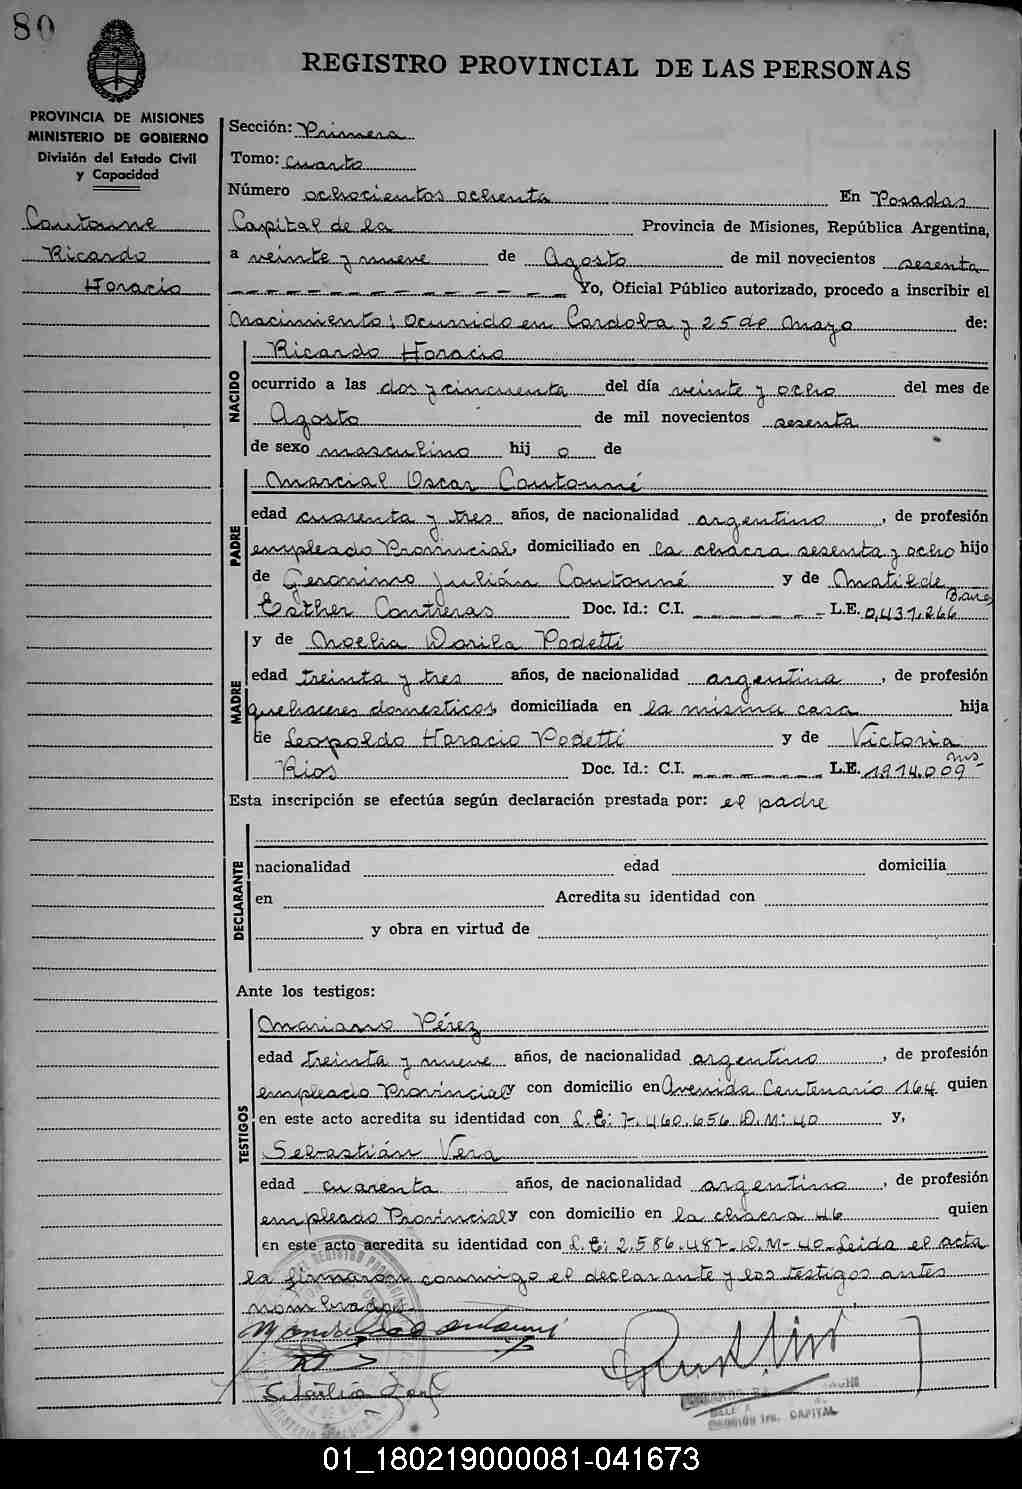 80
REGISTRO PROVINCIAL DE LAS PERSONAS
PROVINCIA DE MISIONES
MINISTERIO DE GOBIERNO
División del Estado Civil
y Capacidad
Coutouné
Ricardo
Horacio
Sección: Primera
Tomo: Cuarto
Número ochocientos ochenta En Posadas
Capital de la Provincia de Misiones, República Argentina,
a veinte y nueve de Agosto de mil novecientos sesenta
Yo, Oficial Público autorizado, procedo a inscribir el
Nacimiento; ocurrido en Cordoba y 25 de Mayo de:
NACIDO
Ricardo Horacio
ocurrido a las dos y cincuenta del día veinte y ocho del mes de
Agosto de mil novecientos sesenta
de sexo masculino hij o de
PADRE
Marcial Oscar Coutouné
edad cuarenta y tres años, de nacionalidad argentino, de profesión
empleado Provincial, domiciliado en la chacra sesenta y ocho hijo
de Geronimo Julián Coutouné y de Matilde
Esther Contreras Doc. Id.: C.I. L.E. 0,431.266
MADRE
y de Noelia Dorila Podetti
edad treinta y tres años, de nacionalidad argentina, de profesión
quehaceres domesticos, domiciliada en la misma casa hija
de Leopoldo Horacio Podetti y de Victoria
Rios Doc. Id.: C.I. L.E. 1.914.009
Esta inscripción se efectúa según declaración prestada por: el padre
DECLARANTE
nacionalidad edad domicilia
en Acredita su identidad con
y obra en virtud de
Ante los testigos:
TESTIGOS
Mariano Pérez
edad treinta y nueve años, de nacionalidad argentino, de profesión
empleado Provincial y con domicilio en Avenida Centenario 164 quien
en este acto acredita su identidad con L.E: 7.460.656 D.M: 40 y,
Sebastián Vera
edad cuarenta años, de nacionalidad argentino, de profesión
empleado Provincial y con domicilio en la chacra 46 quien
en este acto acredita su identidad con L.E: 2.586.487- D.M- 40- Leida el acta
la firmaron conmigo el declarante y los testigos antes
nombrados.
CAPITAL
01_180219000081-041673